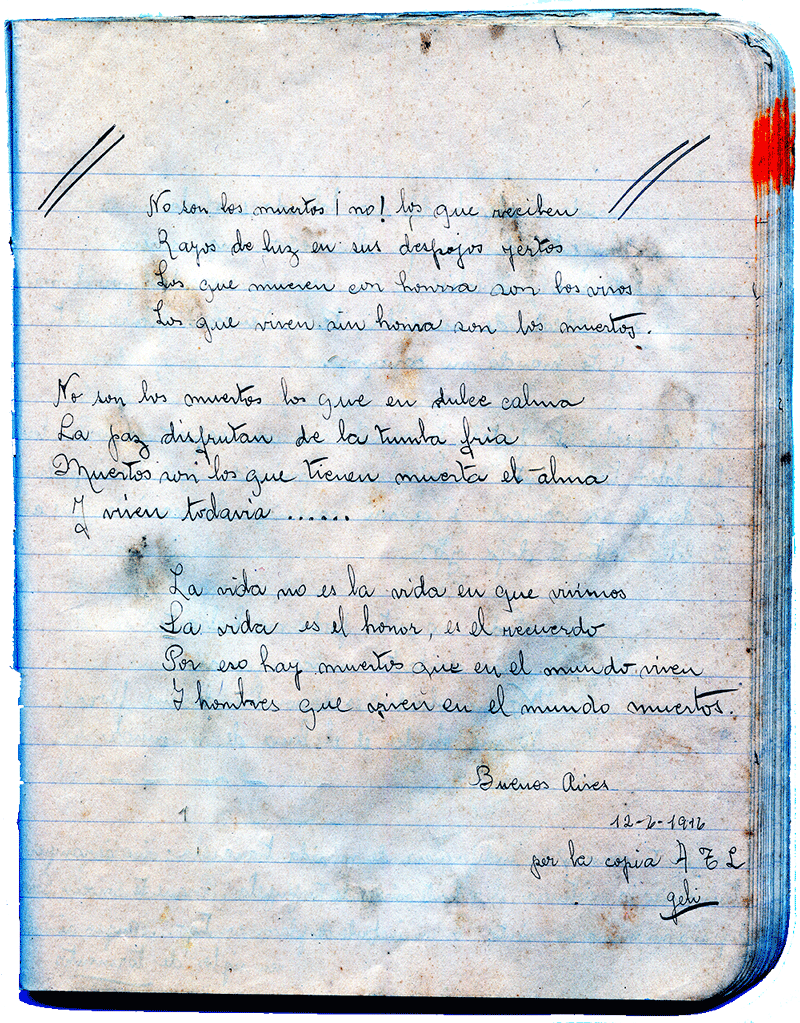 No son los muertos ¡no! los que reciben
Rayos de luz en sus despojos yertos
Los que mueren con honrra son los vivos
Los que viven sin honra son los muertos.
No son los muertos los que en dulce calma
La paz disfrutan de la tumba fria
Muertos son los que tienen muerta el alma
Y viven todavia ......
La vida no es la vida en que vivimos
La vida es el honor, es el recuerdo
Por eso hay muertos que en el mundo viven
Y hombres que viven en el mundo muertos.
Buenos Aires
12-6-1916
por la copia A T L
geli